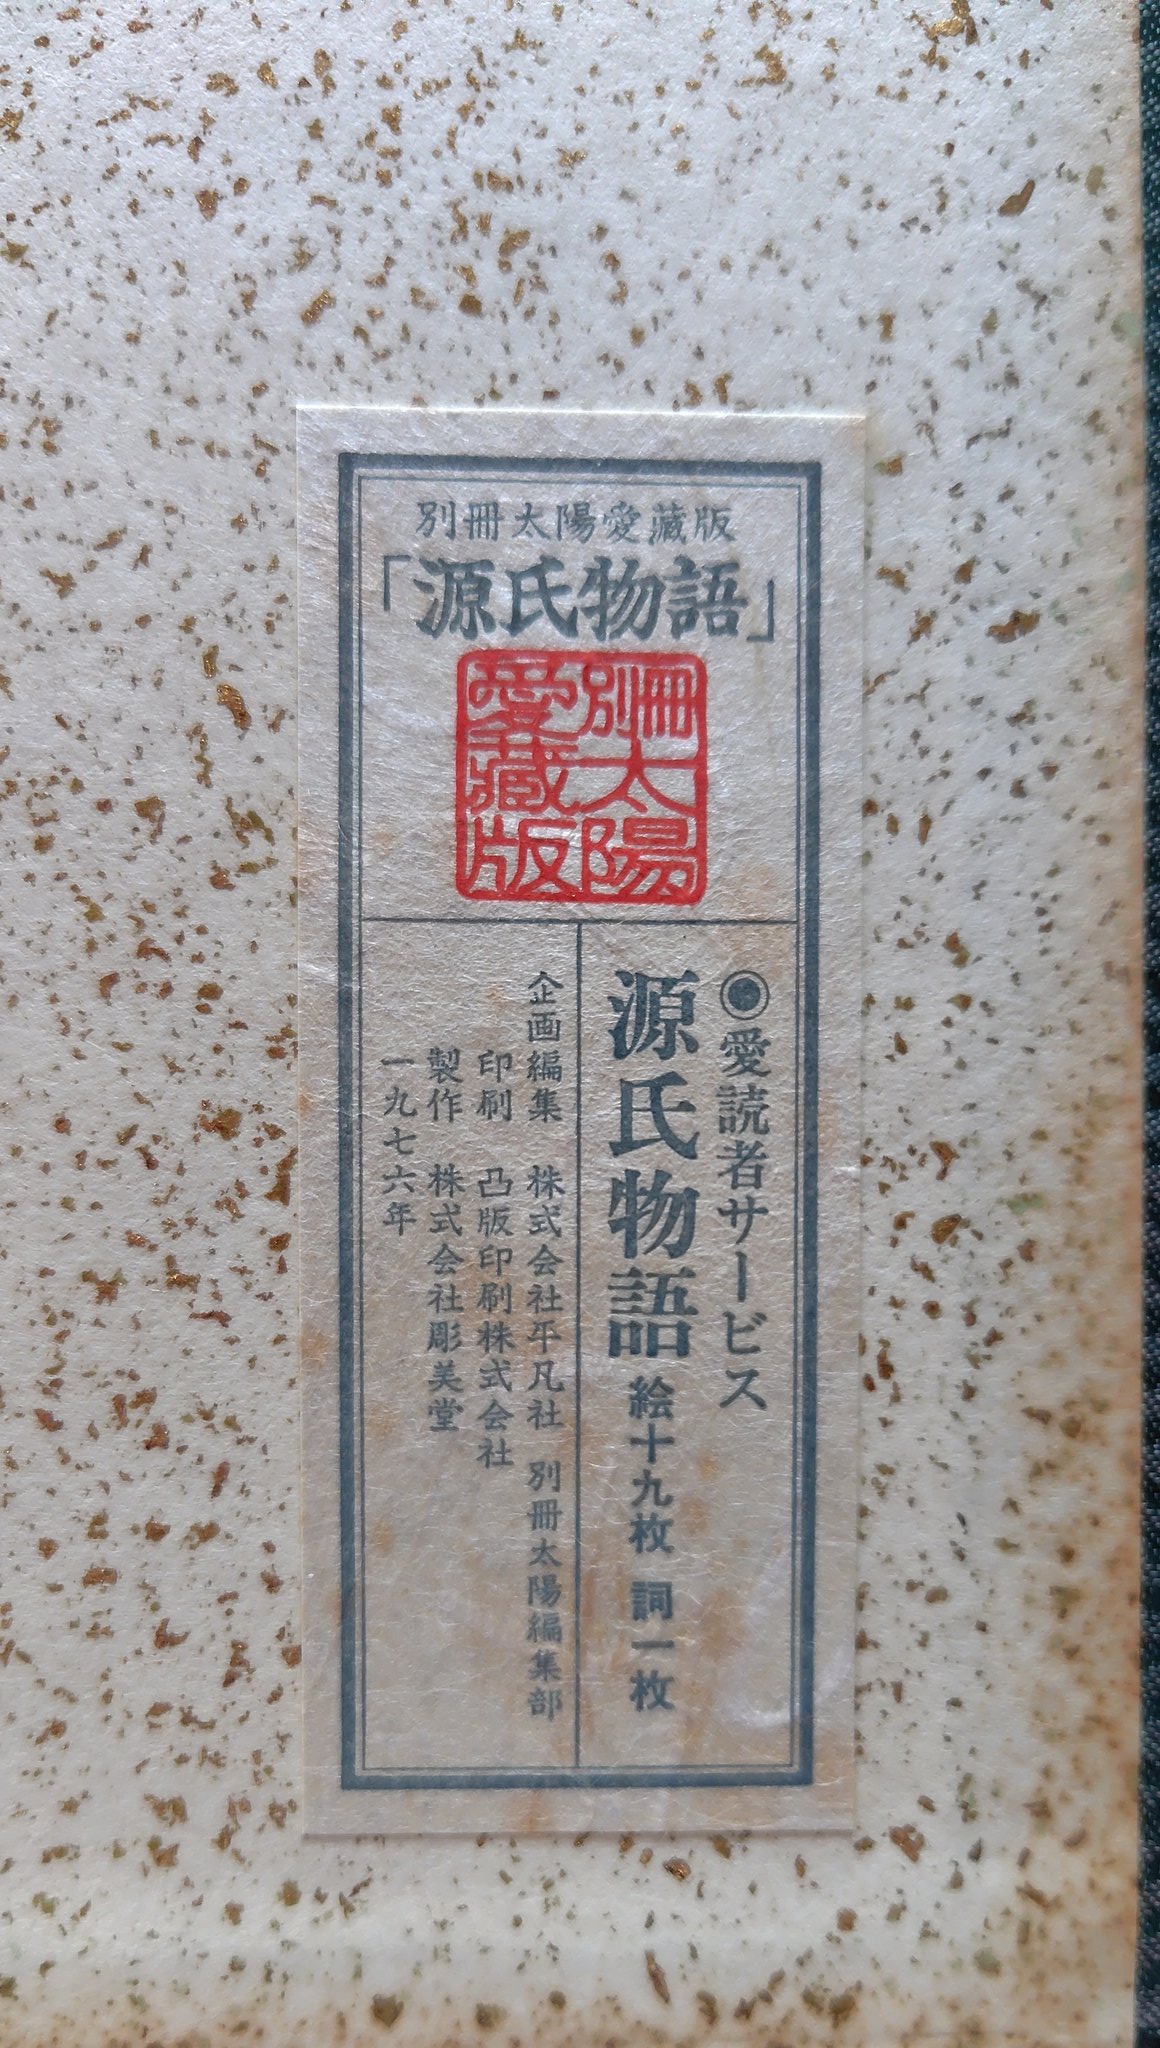 別冊太陽愛蔵版
「源氏物語」
別冊太陽
愛蔵版
◉愛読者サービス
源氏物語 絵十九枚 詞一枚
企画編集 株式会社平凡社 別冊太陽編集部
印刷 凸版印刷株式会社
製作 株式会社彫美堂
一九七六年